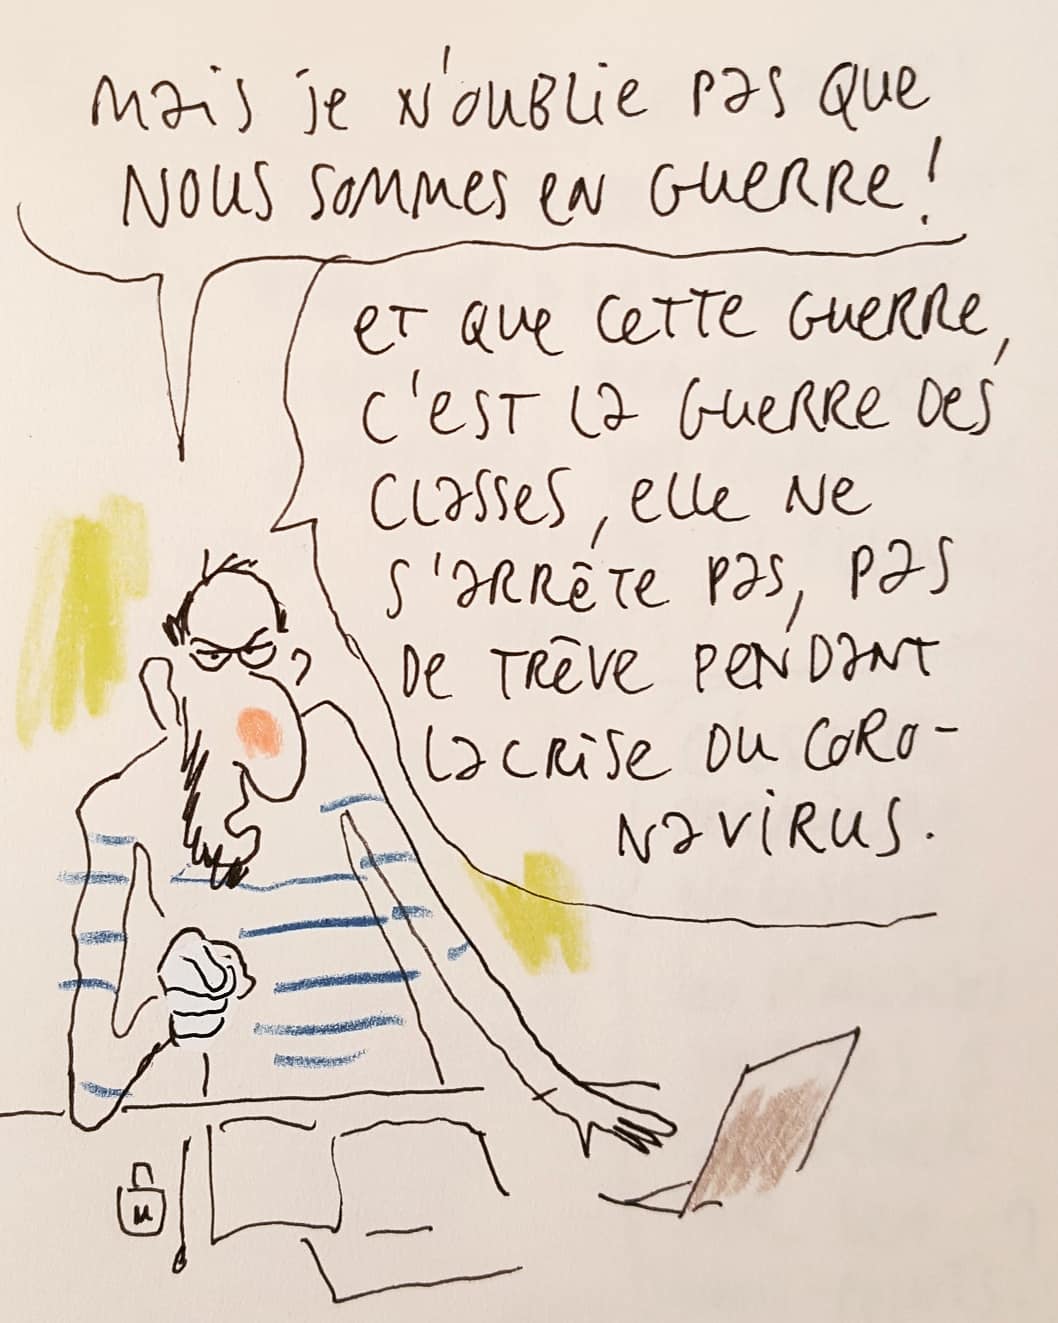 Mais je n'oublie pas que
nous sommes en guerre !
et que cette guerre,
c'est la guerre des
classes, elle ne
s'arrête pas, pas
de trêve pendant
la crise du coro-
navirus.
M